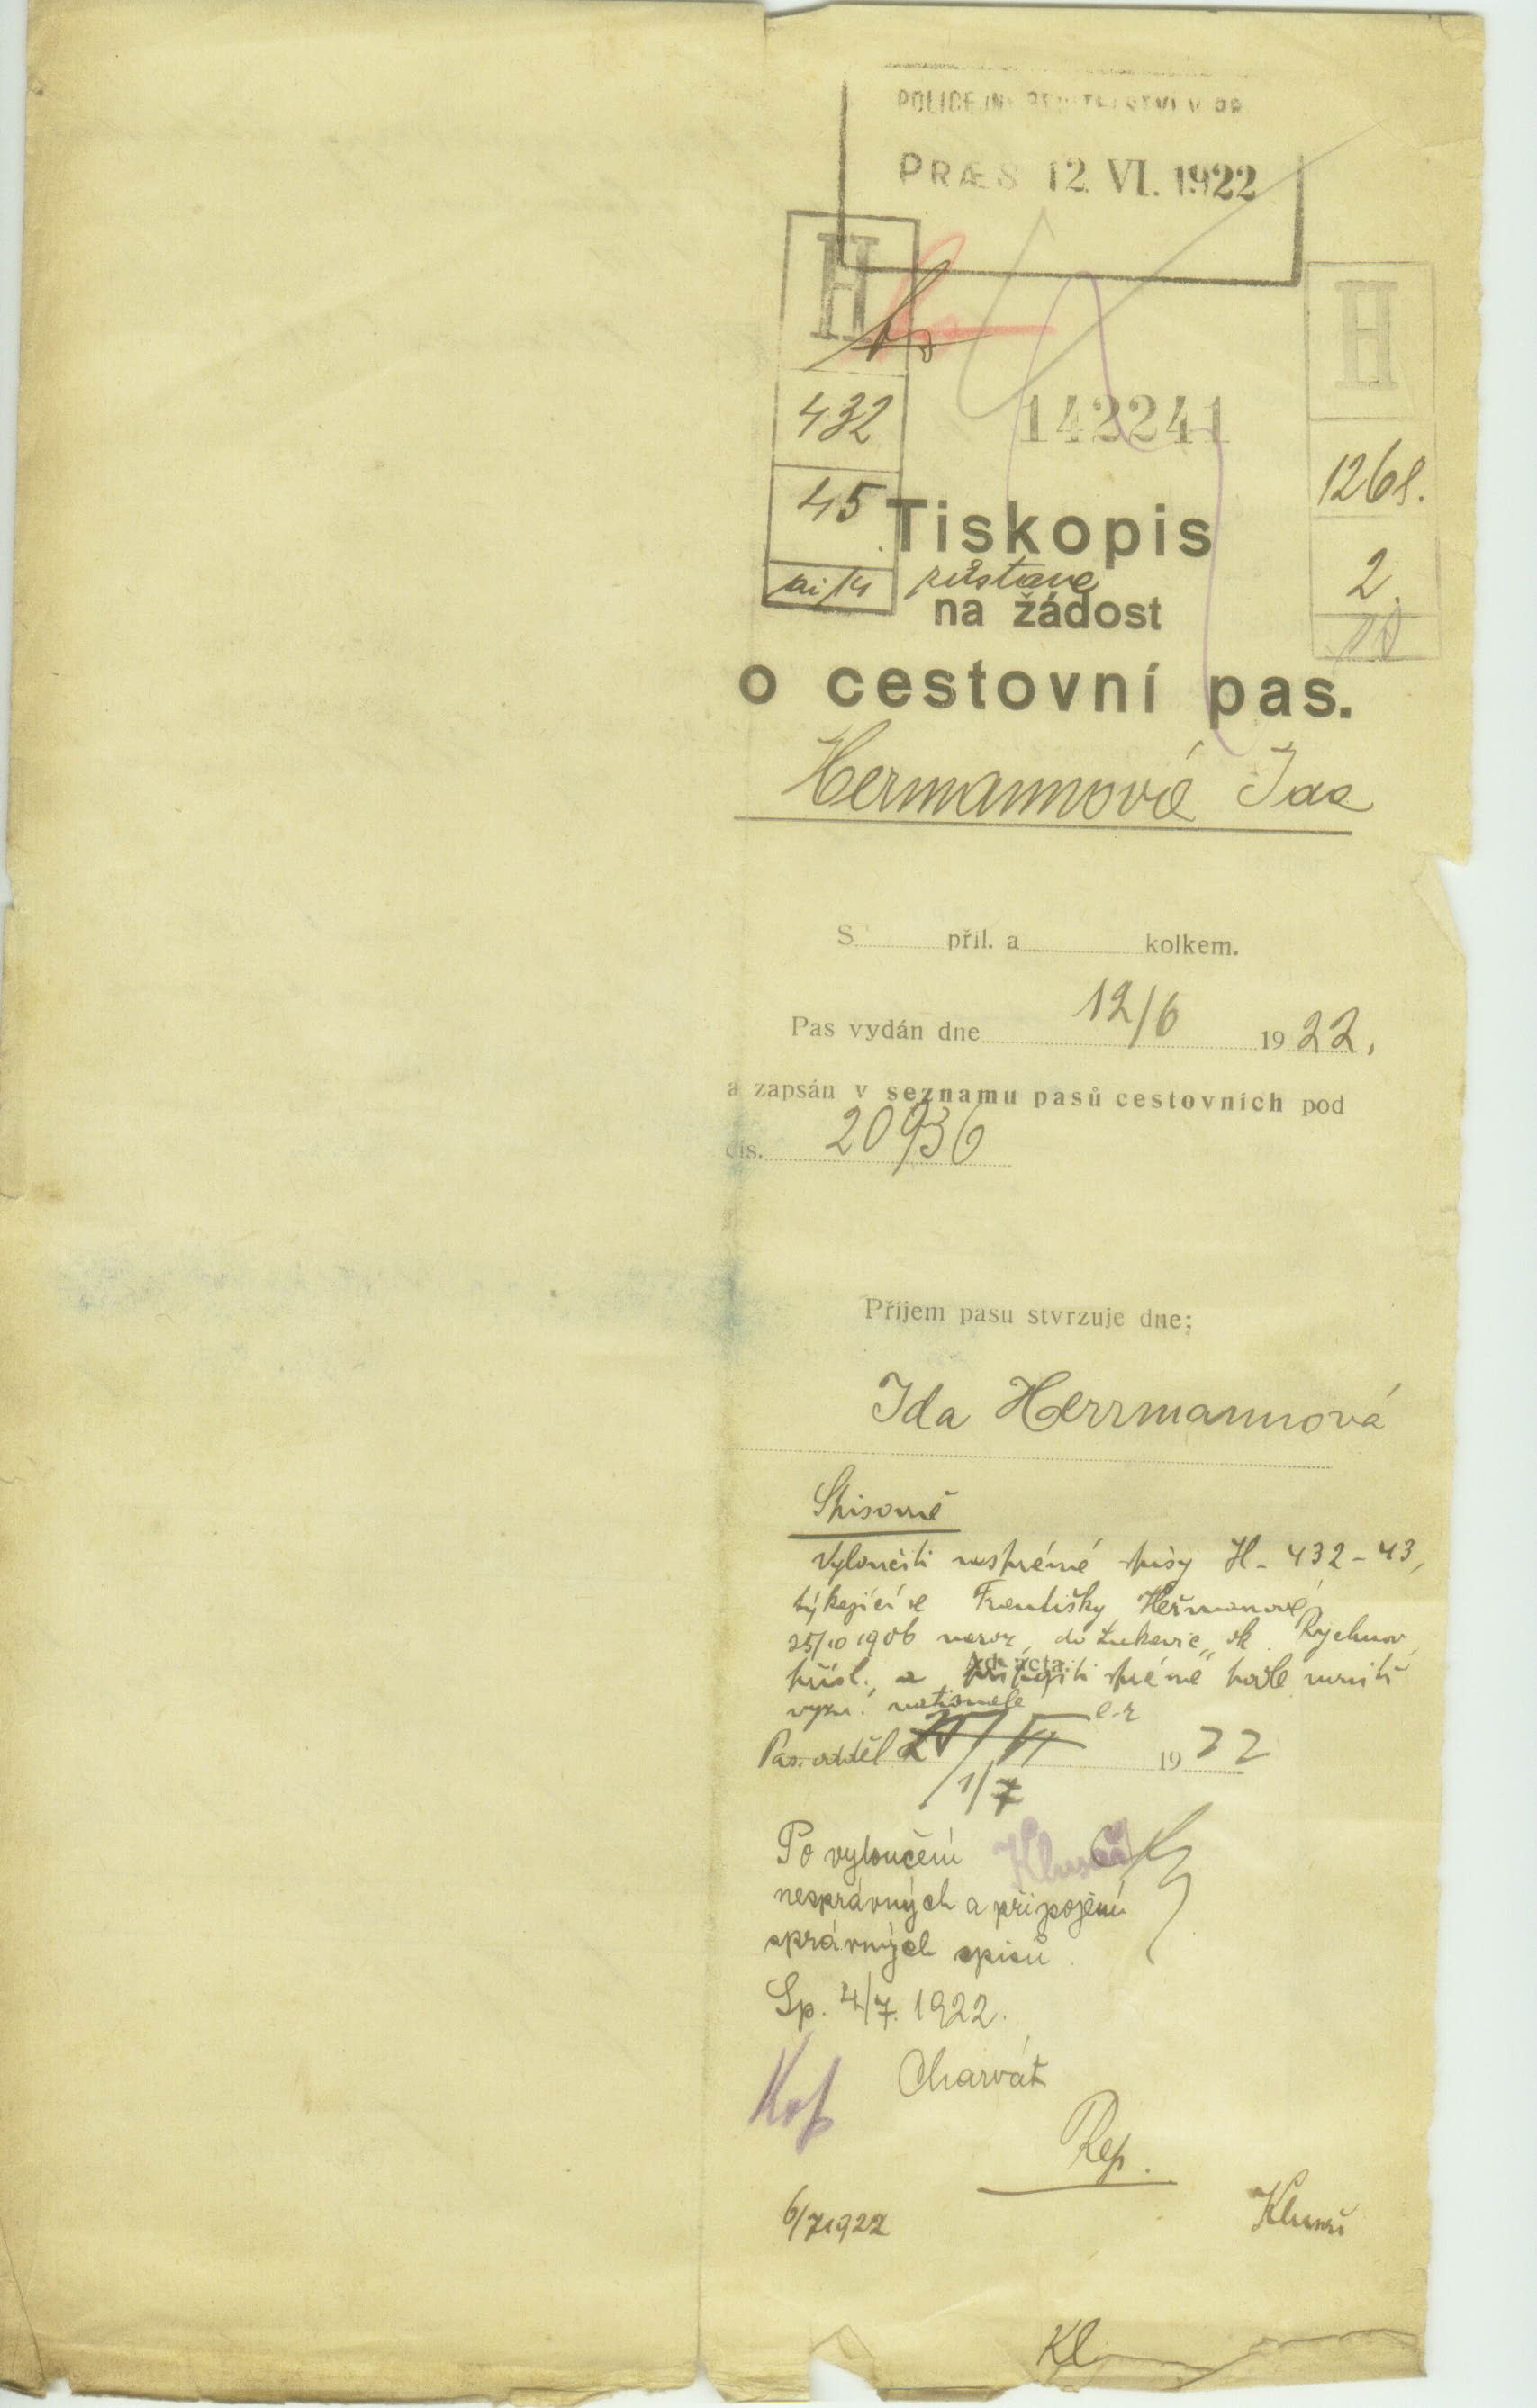 POLICEJNÍ ŘEDITELSTVÍ V PR
PRÆS 12. VI. 1922
H
H
432
142241
1268.
45
Tiskopis
2.
zůstane
na žádost
o cestovní pas.
Hermannová Ida
S přil. a kolkem.
Pas vydán dne 12/6 1922.
a zapsán v seznamu pasů cestovních pod
čís. 20936
Příjem pasu stvrzuje dne:
Ida Herrmannová
Spisovně
Vyloučiti nesprávné spisy H-432-43,
týkající se Františky Heřmanové,
25/10 1906 naroz, do Lukavic, ok. Rychnov
přísl., a připojiti správné podle
Ad acta.
nationale
Pas. odděl 1922
1/7
Po vyloučení
nesprávných a připojení
správných spisů
Sp. 4/7. 1922.
Charvát
Rep.
6/7 1922
Kl